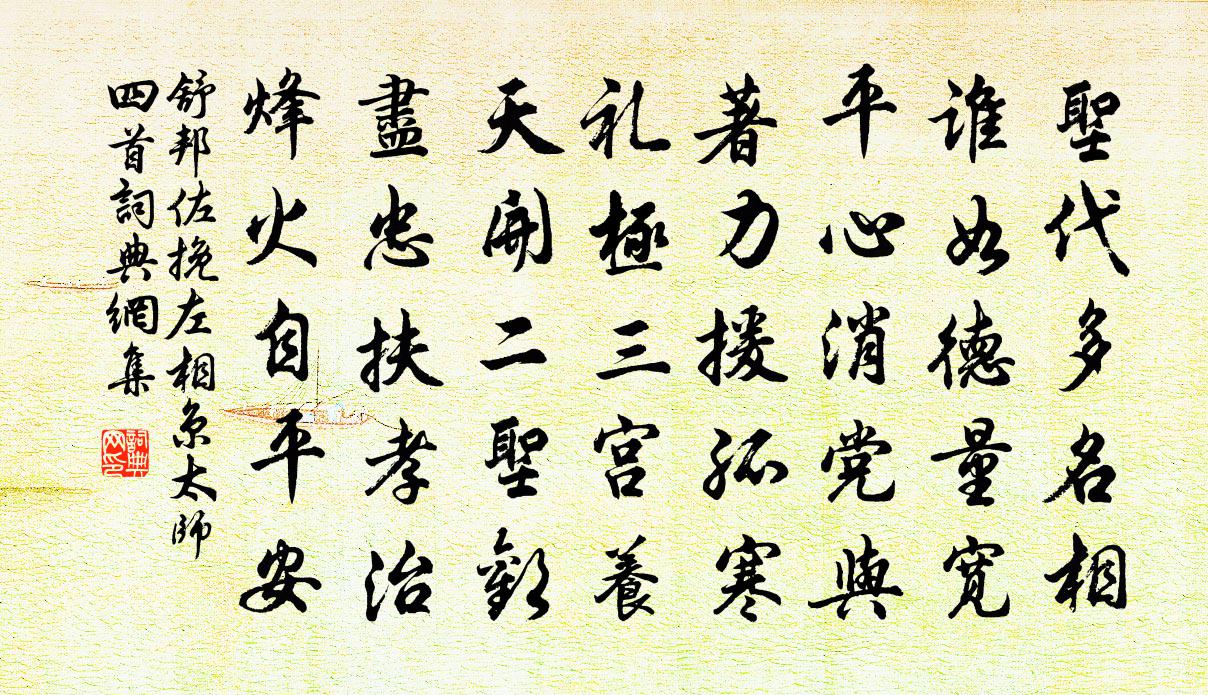 聖代多名相
誰如德量寬
平心消党與
著力援孤寒
礼極三宮養
天開二聖歡
盡忠扶孝治
烽火自平安
舒邦佐挽左相京太師
四首詞典網集
詞典
网印